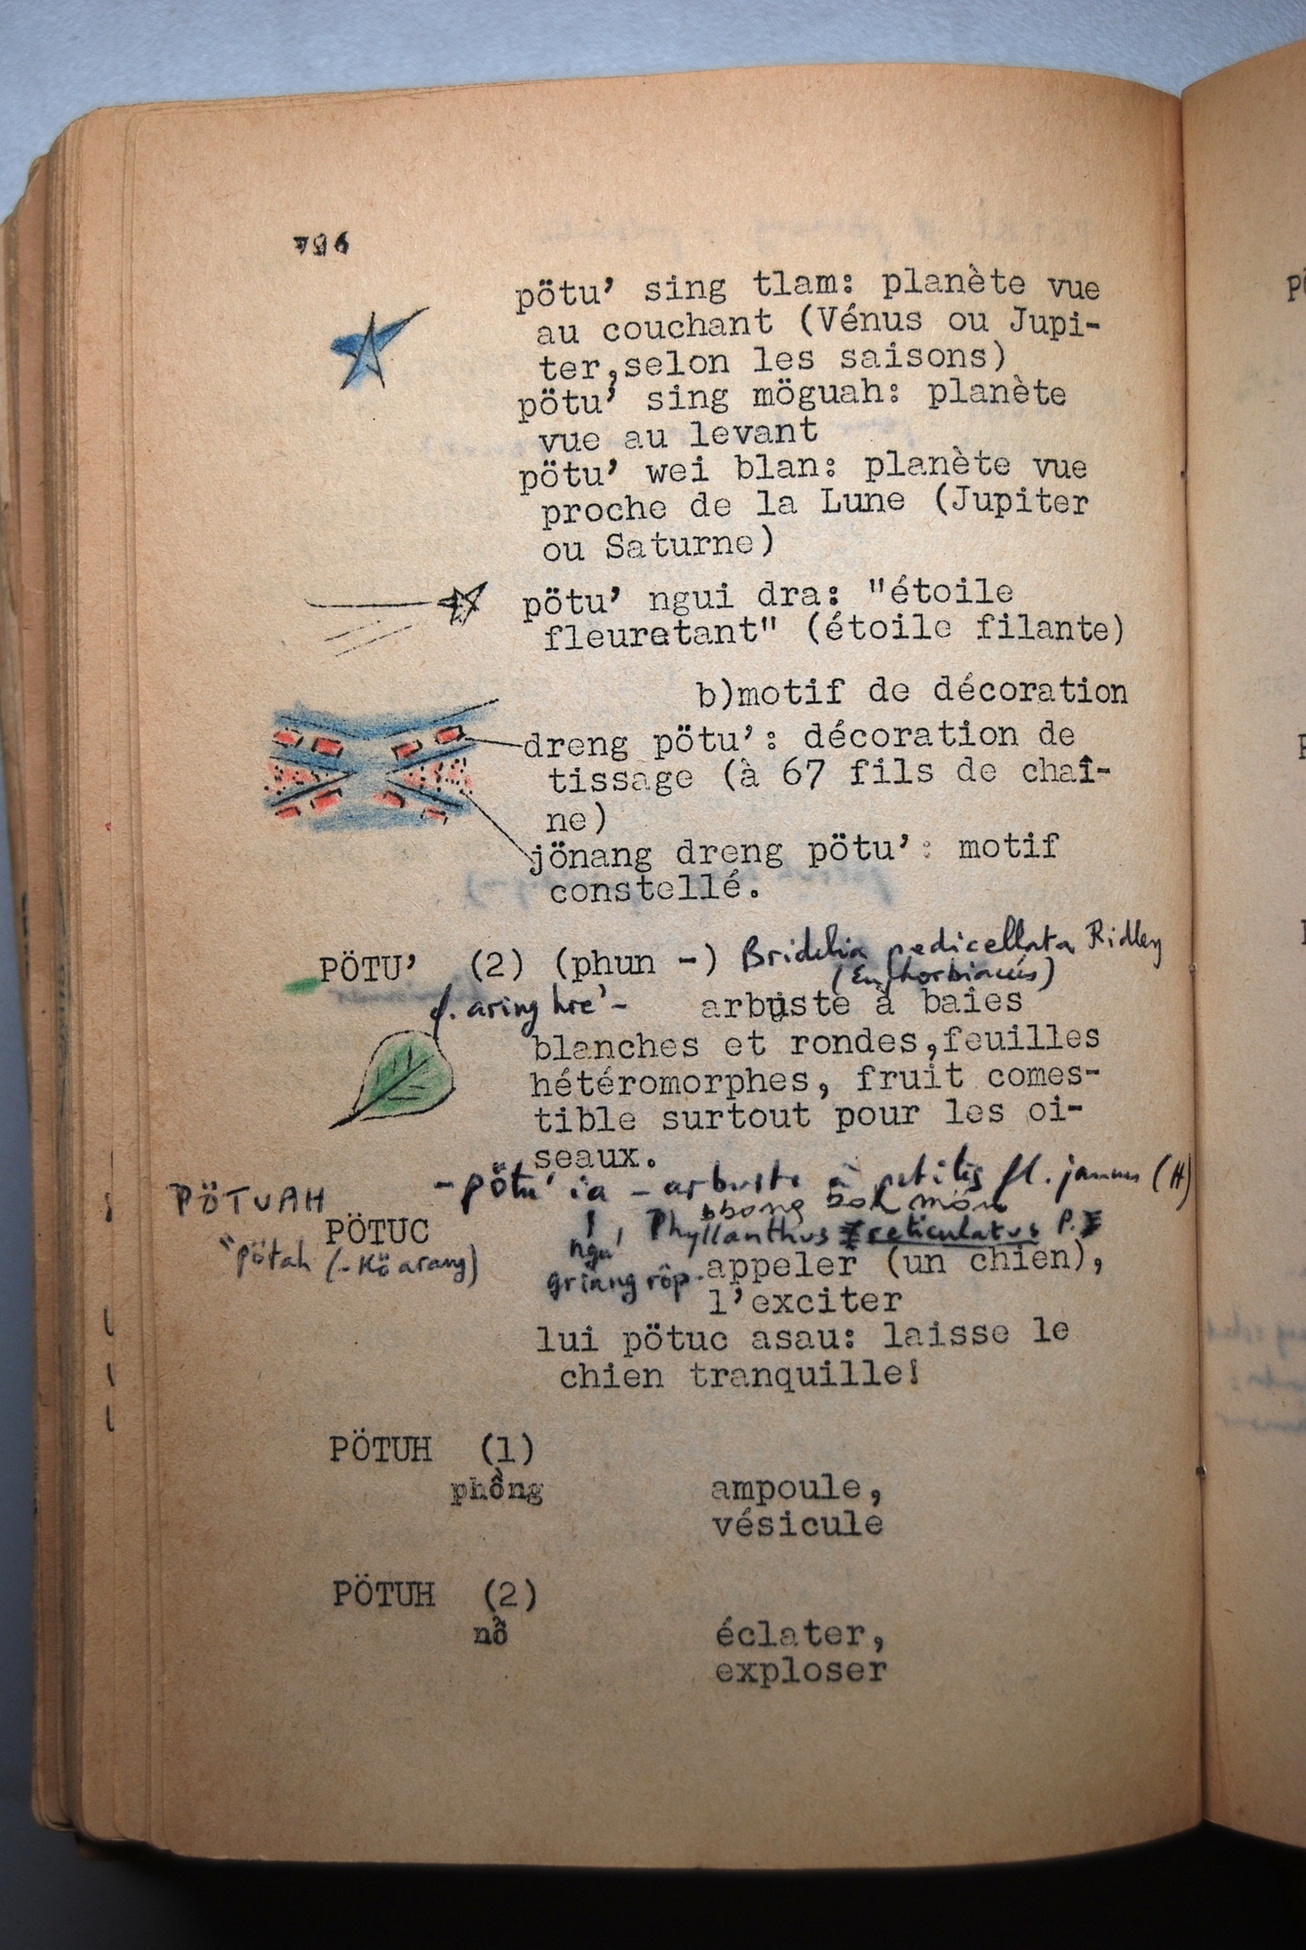 796
pötu' sing tlam: planète vue
au couchant (Vénus ou Jupi-
ter,selon les saisons)
pötu' sing möguah: planète
vue au levant
pötu' wei blan: planète vue
proche de la Lune (Jupiter
ou Saturne)
pötu' ngui dra: "étoile
fleuretant" (étoile filante)
b)motif de décoration
dreng pötu': décoration de
tissage (à 67 fils de chaî-
ne)
jönang dreng pötu': motif
constellé.
PÖTU' (2) (phun -) Bridelia pedicellata Ridley
(Euphorbiacées)
aring hre' - arbuste à baies
blanches et rondes,feuilles
hétéromorphes, fruit comes-
tible surtout pour les oi-
seaux.
- pötu' ia - arbuste à petites fl. jaunes (H)
PÖTUAH
bbong bok món
PÖTUC
Phyllanthus reticulatus P.
pötah (- Kö arang)
griang rôp. appeler (un chien),
l'exciter
lui pötuc asau: laisse le
chien tranquille!
PÖTUH (1)
phồng ampoule,
vésicule
PÖTUH (2)
nỗ éclater,
exploser